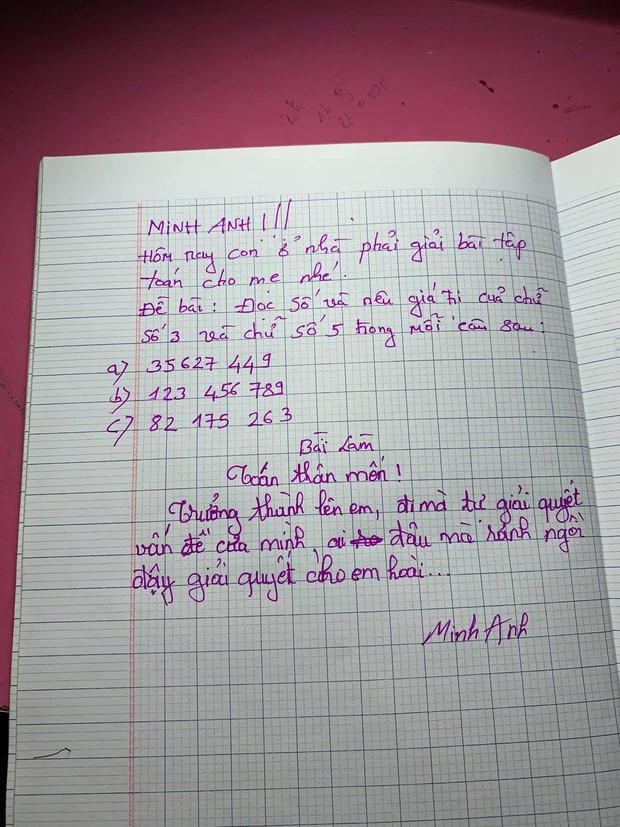 MINH ANH !!!
Hôm nay con ở nhà phải giải bài tập
toán cho mẹ nhé.
Đề bài: Đọc số và nêu giá trị của chữ
số 3 và chữ số 5 trong mỗi câu sau:
a) 35627 449
b) 123 456 789
c) 82 175 263
Bài Làm
Toán thân mến!
Trưởng thành lên em, đi mà tự giải quyết
vấn đề của mình, ai đâu mà rảnh ngồi
đậy giải quyết cho em hoài...
Minh Anh